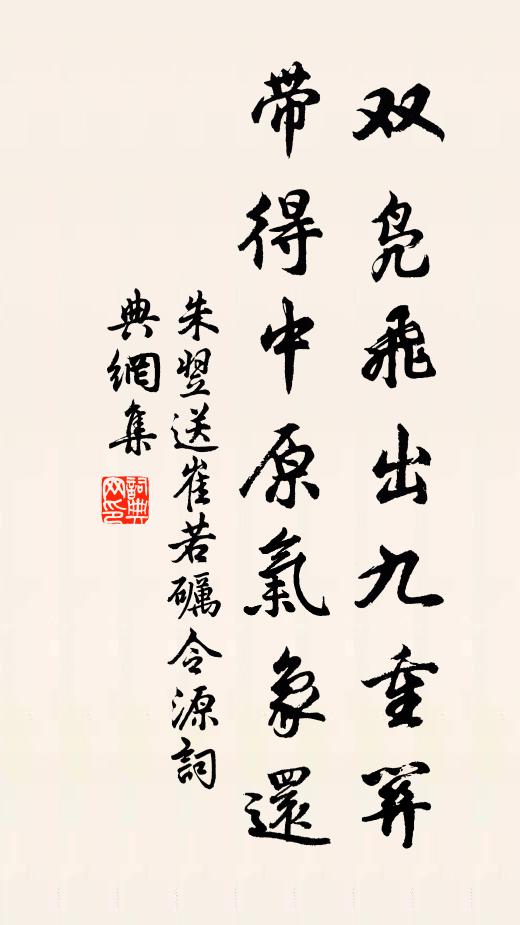 双凫飛出九重關
帶得中原氣象還
朱翌送崔若礪令源詞
典網集
詞典网印